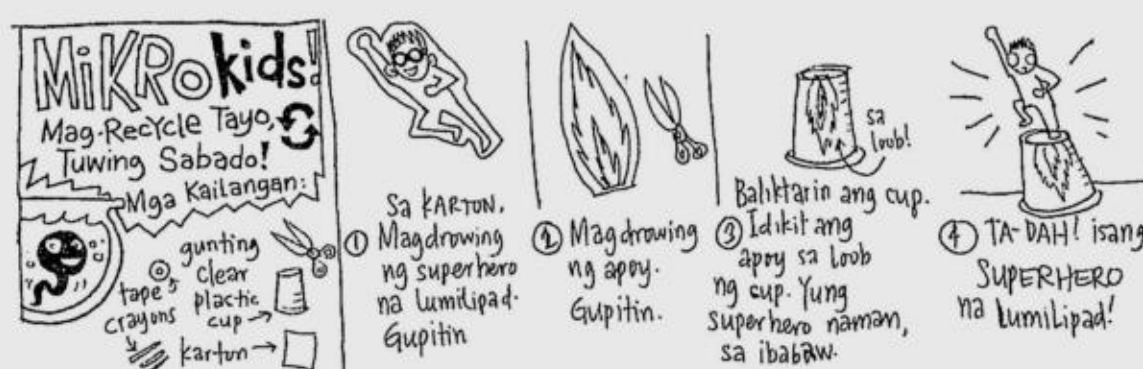 MiKRo kids!
Mag-Recycle Tayo,
Tuwing Sabado!
Mga Kailangan:
gunting
clear
plastic
cup
tape
crayons
karton
① Sa KARTON,
Magdrowing
ng superhero
na lumilipad.
Gupitin
② Magdrowing
ng apoy.
Gupitin.
sa
loob!
③ Baliktarin ang cup.
Idikit ang
apoy sa loob
ng cup. Yung
superhero naman,
sa ibabaw.
④ TA-DAH! isang
SUPERHERO
na lumilipad!